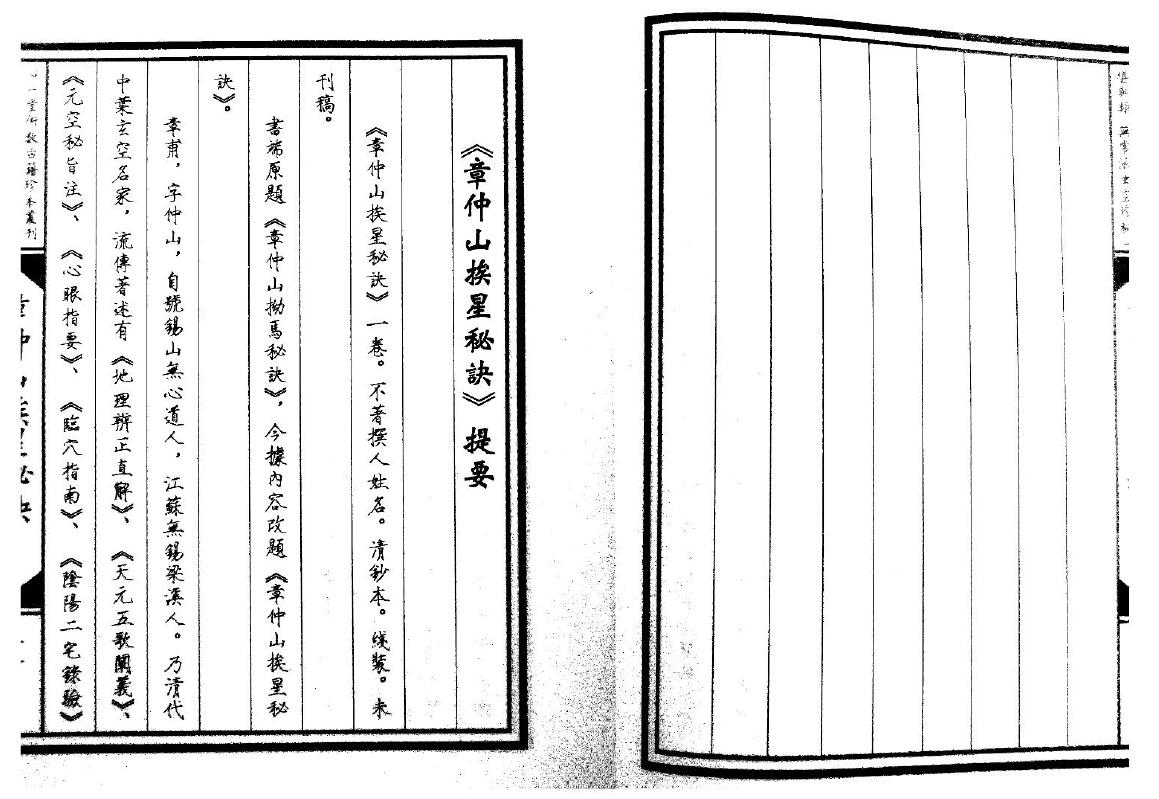 《章仲山挨星秘訣》提要
《章仲山挨星秘訣》一卷。不著撰人姓名。清鈔本。线裝。未
刊稿。
書端原題《章仲山拗馬秘訣》，今據內容改題《章仲山挨星秘
訣》。
章甫，字仲山，自號錫山無心道人，江蘇無錫梁溪人。乃清代
中葉玄空名家，流傳著述有《地理辨正直解》、《天元五歌闡義》、
《元空秘旨注》、《心眼指要》、《臨穴指南》、《陰陽二宅錄驗》
一堂術數古籍珍本叢刊
章仲山挨星秘訣